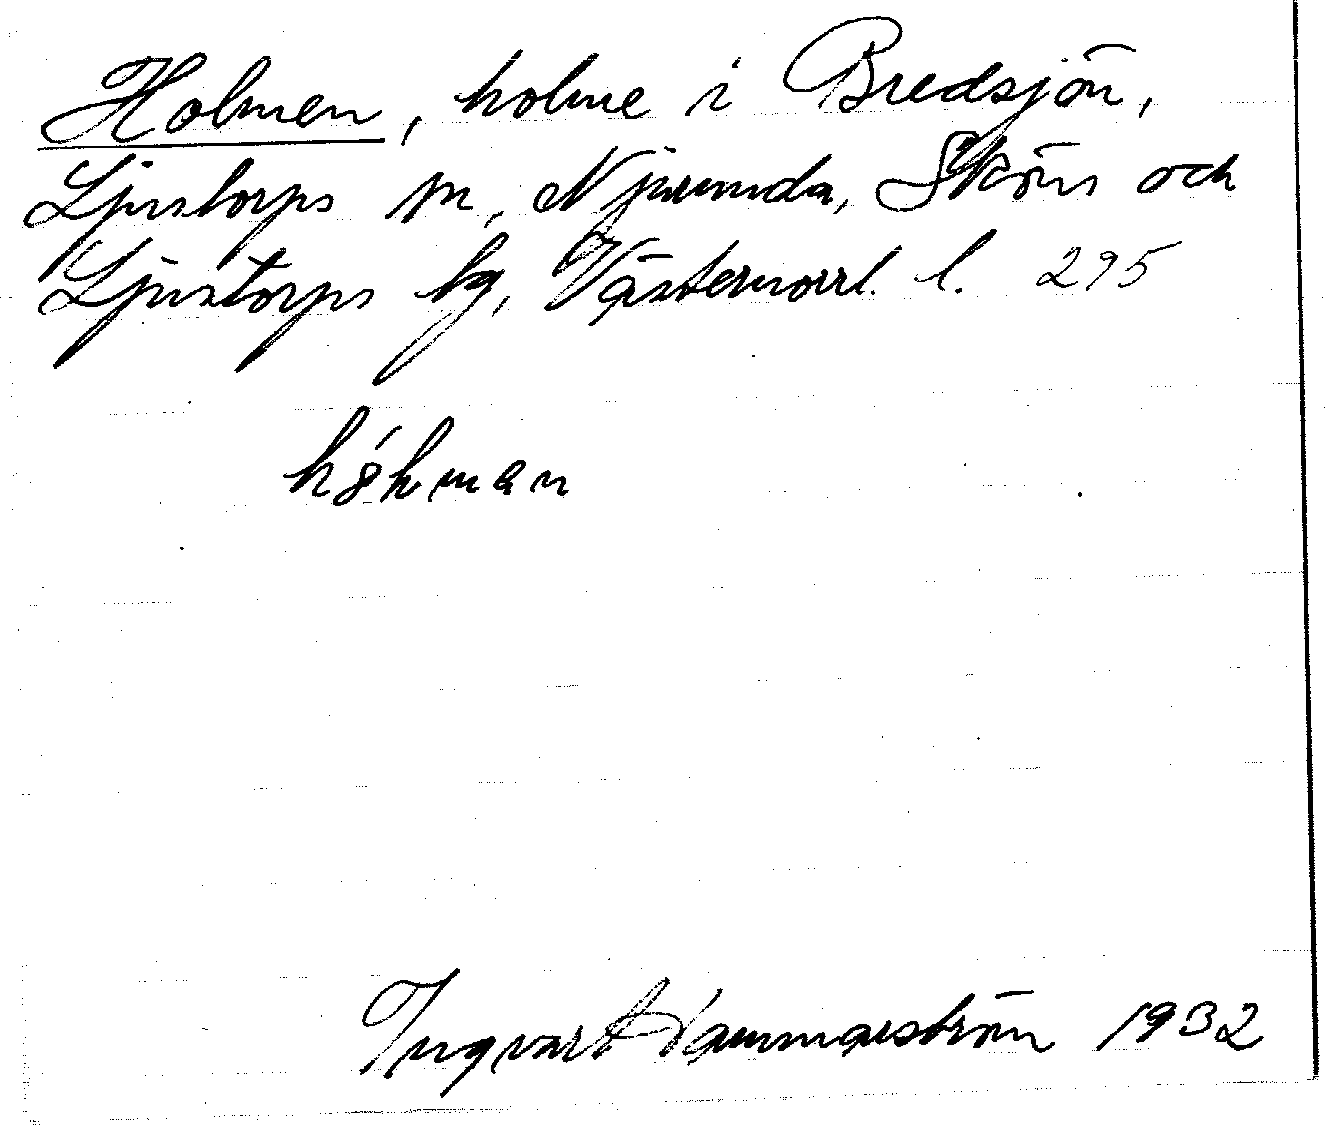 Holmen, holme i Bredsjön,
Ljustorps sn, Njurunda, Sköns och
Ljustorps tg, Västernorrl. l. 295
hǿhman
Ingvart Hammarström 1932